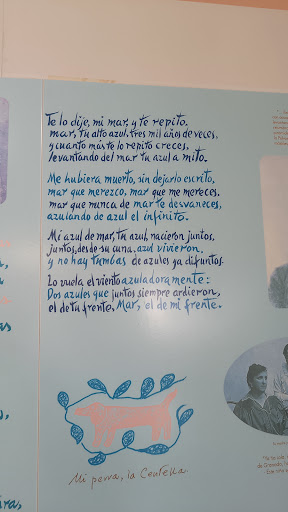 Te lo dije, mi mar, y te repito.
mar, tu alto azul, tres mil años de veces,
y cuanto más te lo repito creces,
levantando del mar tu azul a mito.
Me hubiera muerto, sin dejarlo escrito,
mar que merezco, mar que me mereces.
mar que nunca de mar te desvaneces,
azulando de azul el infinito.
Mi azul de mar, tu azul, nacieron juntos,
juntos, desde su cuna, azul vivieron,
y no hay tumbas de azules ya difuntos.
Lo vuela el viento azuladoramente:
Dos azules que juntos siempre ardieron,
el de tu frente, Mar, el de mi frente.
Mi perra, la Centella